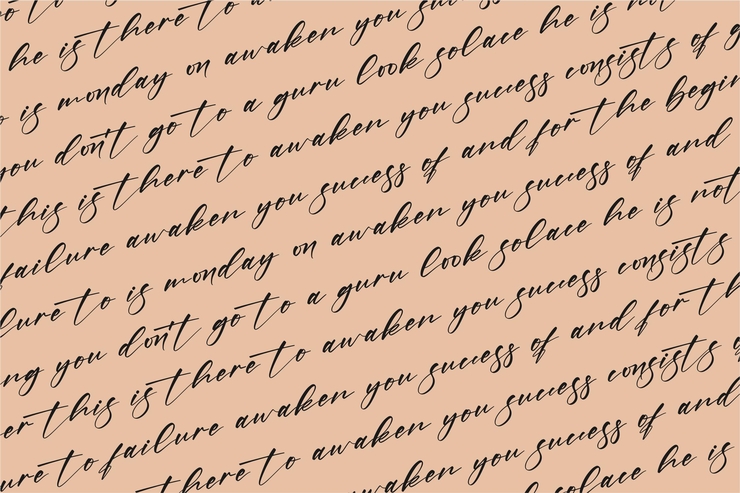 to
he is there to
is monday on awaken you
you don't go to a guru look solace he is not
this is there to awaken you success consists of
failure awaken you success of and for the begin
to is monday on awaken you success of and
ng you don't go to a guru look solace he is not
er this is there to awaken you success consists
ure to failure awaken you success of and for th
there to awaken you success consists
awaken you success of and
solace he is